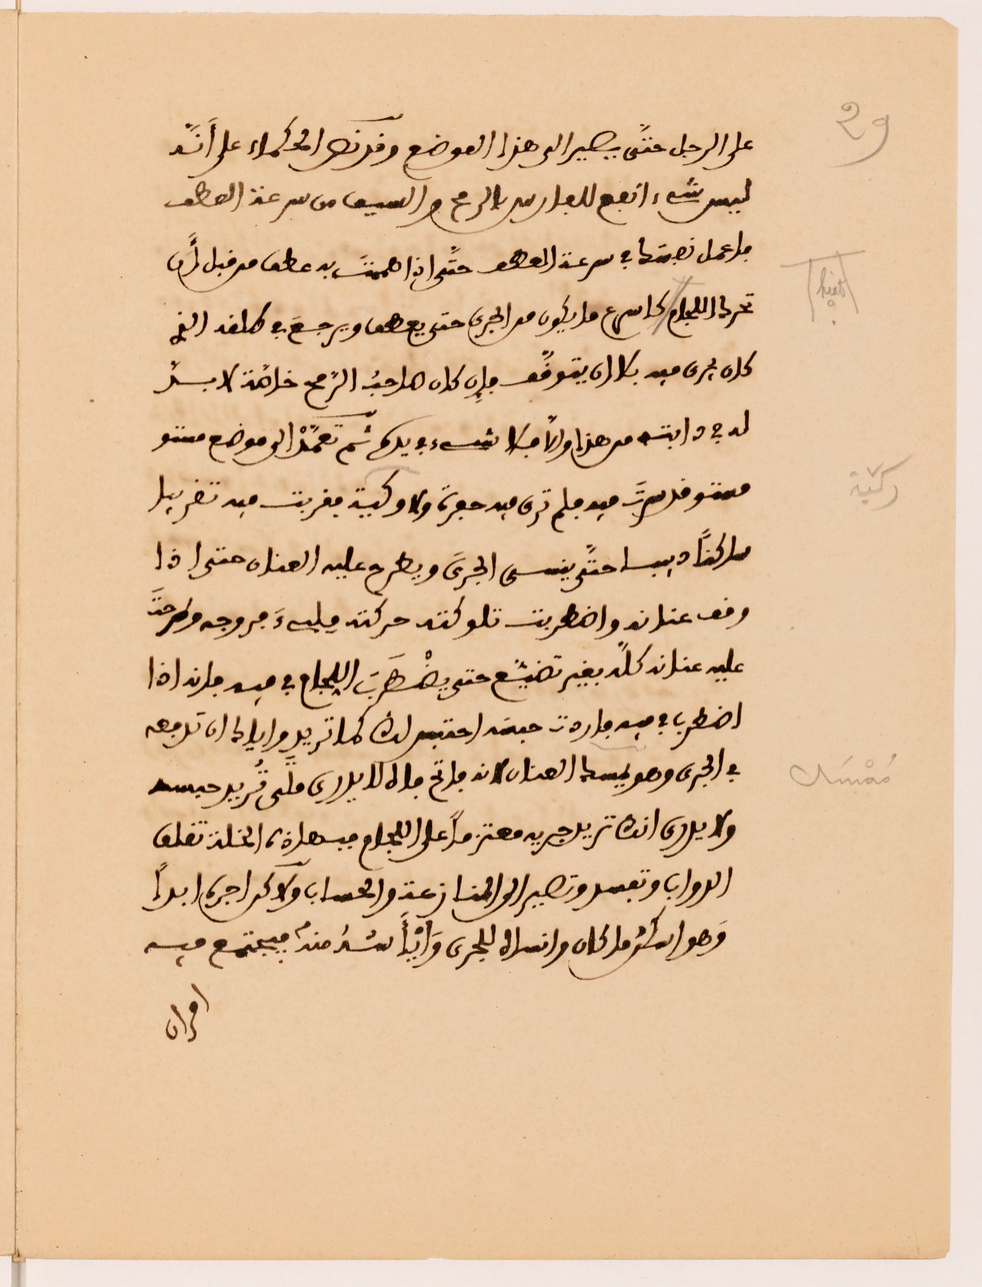 29
على الرجل حتّى يصير الى هذا الموضع وقد ذكر الحكماء على أنّه
ليس شيء انفع للفارس بالرمح والسيف من سرعة العطف
فاعمل نفسك في سرعة العطف حتّى اذا هممتَ به عطف من قبل أن
تحرك اللجام كاسرع ما يكون من الجرى حتى يعطف ويرجع في طلقه الذي
كان جرى فيه بلا ان يتوقّف فإن كان صاحبُ الرّمح خاصّة لا بدّ
له في دابته من هذا وإلّا فلا شيء في يده ثم تعمّدْ الى موضع مستو
مستو قد سرتَ فيه فلم ترى فيه حفرة ولا وكية فقربت فيه تقريبا
ساكنًا دبيبا حتّى ينسى الجرىَ ويطرح عليه العنان حتى اذا
وقف عنانه واضطربت تلوكته حركته فليىءَ فروجه وطرحتَ
عليه عنانه كلّه بغير تضيّع حتى يضْطَرَبَ اللجام في فيه فانه اذا
اضطرب في فيه فاردت حبسَه احتبس لك كما تريد واياك ان تدفعه
في الجرى وهو يمسك العنان لانه فاتح فاه لا يدرى متَّى تُريد حبسه
ولا يدرى انك تريد جريه معتزماً على اللجام فبهذه الخلة تقلق
الدواب وتفسد وتصير الى المنازعة والحساب ولاكن اجره ابداً
وَهو اسكن ما كان وانساه للجرى وَابْدأ سُدُ منهُ فيجتمع فيه
امران
hiet ?
ركيّة
مُمْسَك